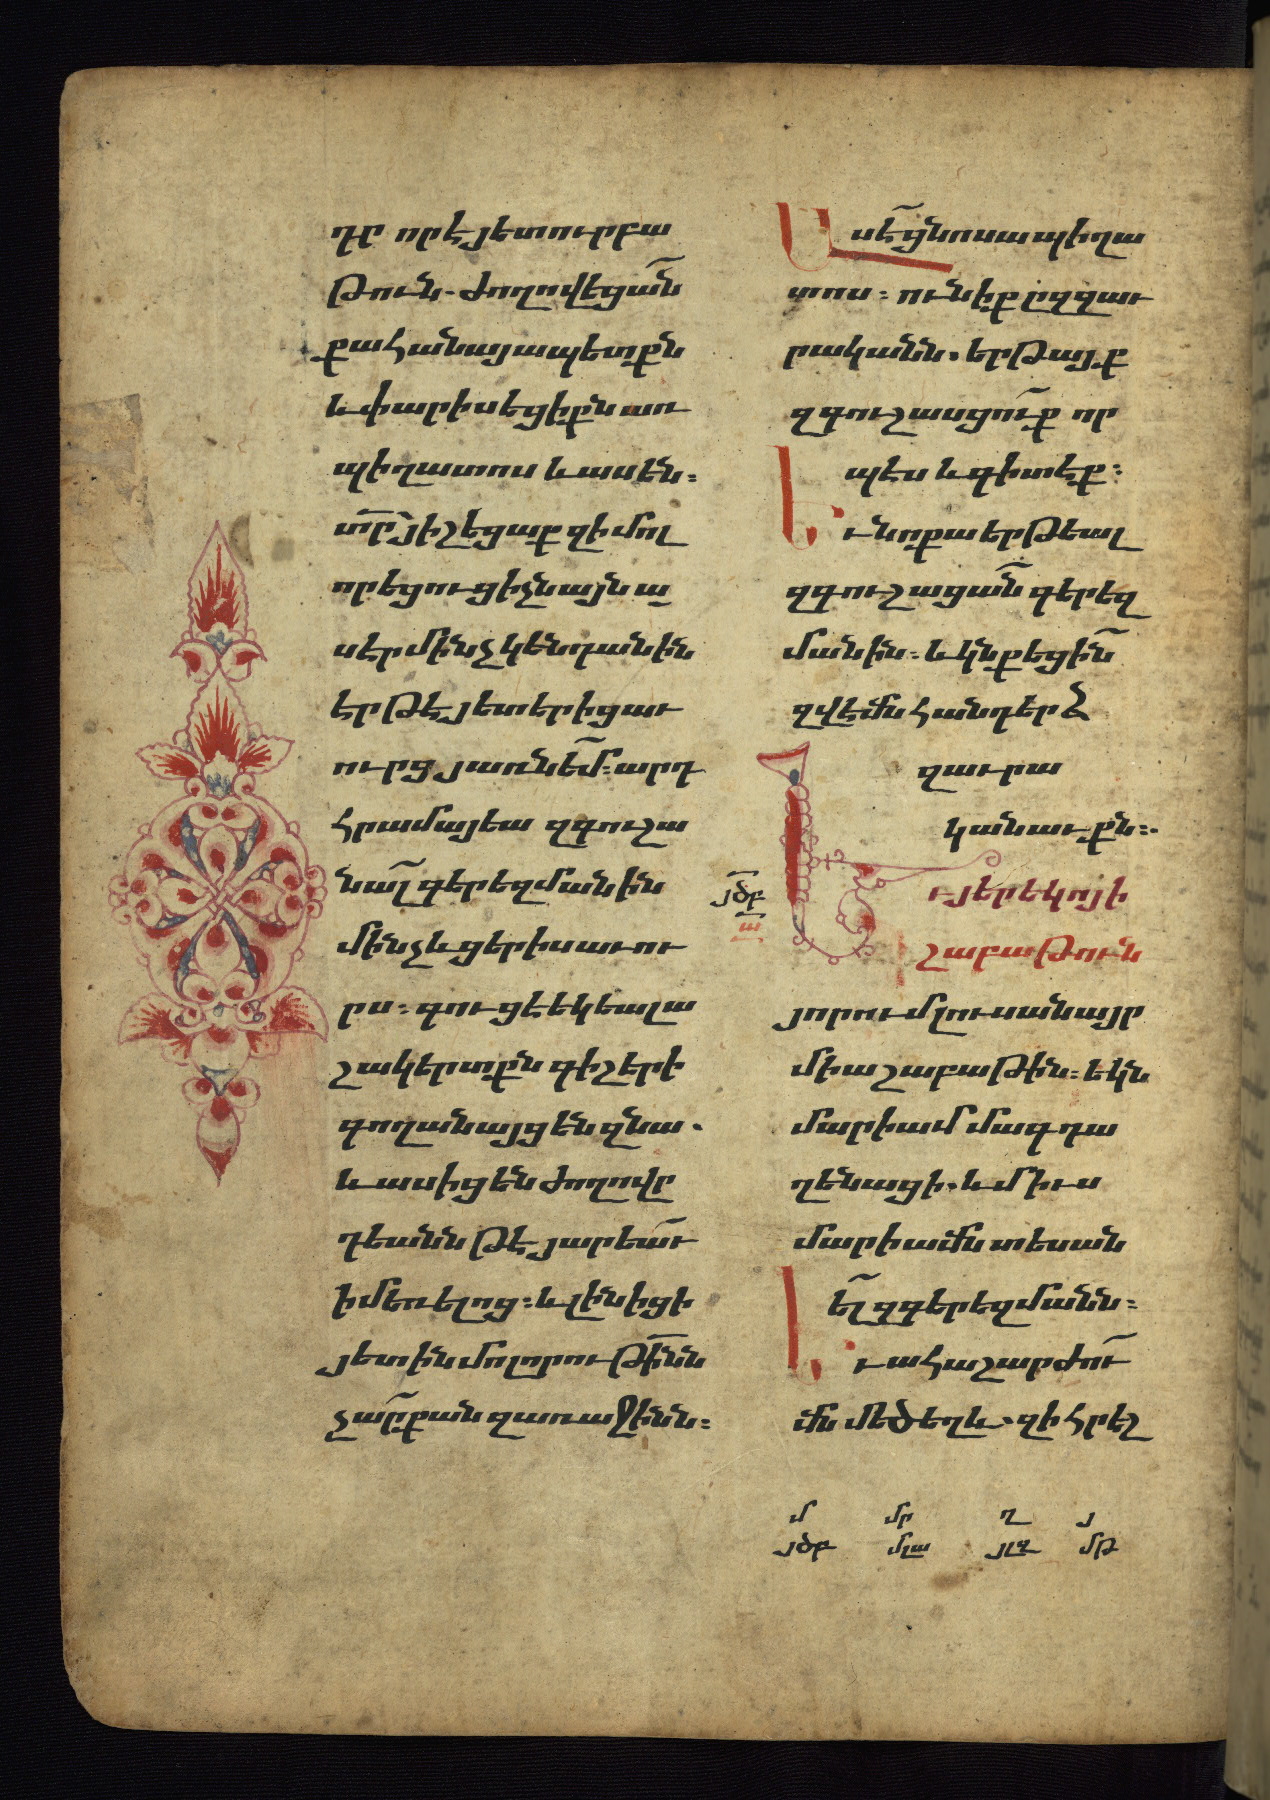 ղը որ է յետ ուրբա
թուն. ժողովեցան
քահանայապետքն
և փարիսեցիքն առ
պիղատոս և ասեն։
տր յիշեցաք զի մոլ
որեցուցիչն այն ա
սեր մինչ կենդանին
էր թէ յետ երից աւ
ուրց յառնեմ։ արդ
հրամայեա զգուշա
նալ գերեզմանին
մինչև ցերիս աւու
րս։ գուցէ եկեալ ա
շակերտքն գիշերի
գողանայցեն զնա.
և ասիցեն ժողովը
դեանն թէ յարեաւ
ի մեռելոց։ և լինիցի
յետին մոլորութինն
չար քան զառաջինն։
Ասէ ցնոսա պիղա
տոս։ ունիք ըզզաւ
րականն. երթայք
զգուշասցուք որ
պէս և գիտէք։
Եւ նոքա երթեալ
զգուշացան գերեզ
մանին։ և կնքեցին
զվէմն հանդերձ
զաւրա
կանաւքն։
յծբ
ա
Եւ յերեկոյի
շաբաթուն
յորում լուսանայր
միաշաբաթին։ եկն
մարիամ մագդա
ղենացի. և միւս
մարիամն տեսան
ել զգերեզմանն։
Եւ ահա շարժու
մն մեծ եղև. զի հրեշ
մ մր ղ յ
յծբ մլա յլզ մթ